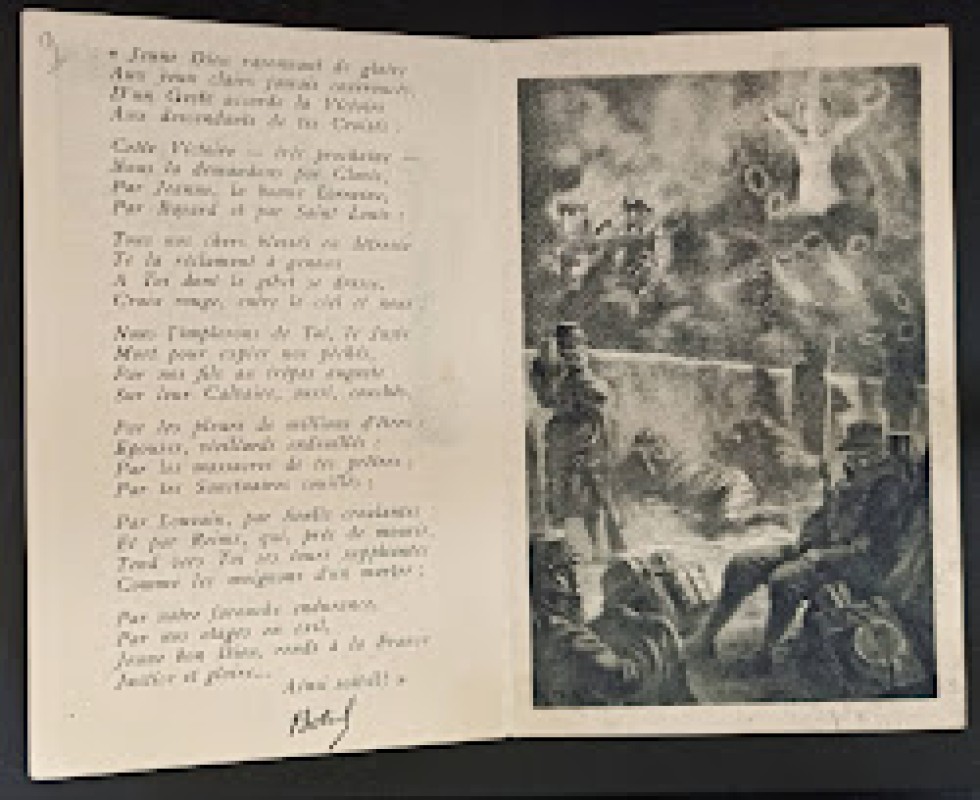 « Jeune Dieu rayonnant de gloire
Aux yeux clairs jamais
D'un Geste accorde la Victoire
Aux descendants de tes Croisés ;
Cette Victoire — très prochaine —
Nous la demandons par Clovis,
Par Jeanne, la bonne Lorraine,
Par Bayard et par Saint Louis ;
Tous nos chers blessés en détresse
Te la réclament à genoux
A Toi dont le gibet se dresse,
Croix rouge, entre le ciel et nous ;
Nous l'implorons de Toi, le Juste
Mort pour expier nos péchés,
Par nos fils au trépas auguste
Sur leur Calvaire, aussi, couchés,
Par les pleurs de millions d'êtres ;
Epouses, vieillards
Par les massacres de tes prêtres ;
Par les Sanctuaires souillés ;
Par Louvain, par Senlis croulantes
Et par Reims, qui, près de mourir,
Tend vers Toi ses tours suppliantes
Comme les moignons d'un martyr ;
Par notre farouche endurance,
Par nos otages en exil,
Jeune bon Dieu, rends à la France
Justice et gloire...
Ainsi soit-il ! »
Botrel